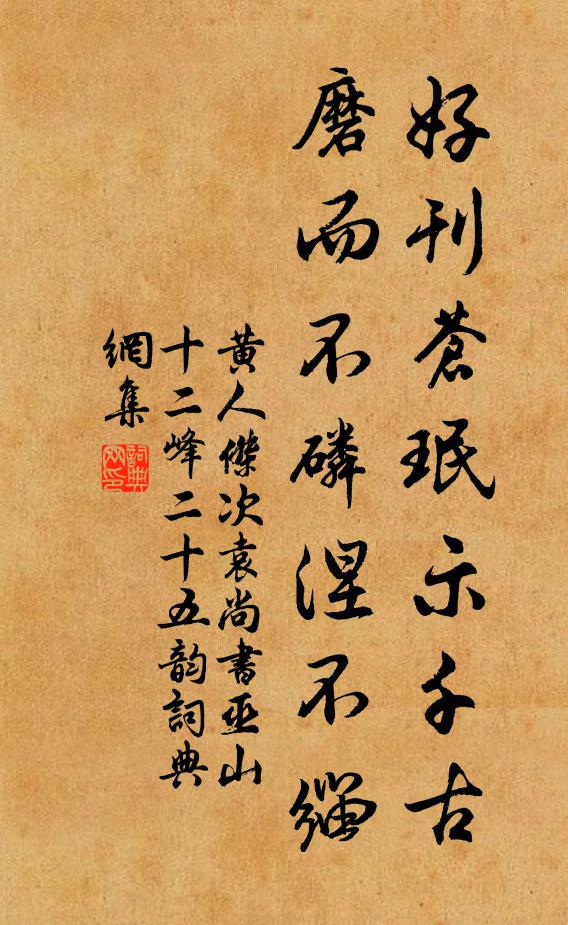 好刊蒼珉示千古
磨而不磷涅不緇
黄人傑次袁尚書巫山
十二峰二十五韵詞典
網集
詞典
网印